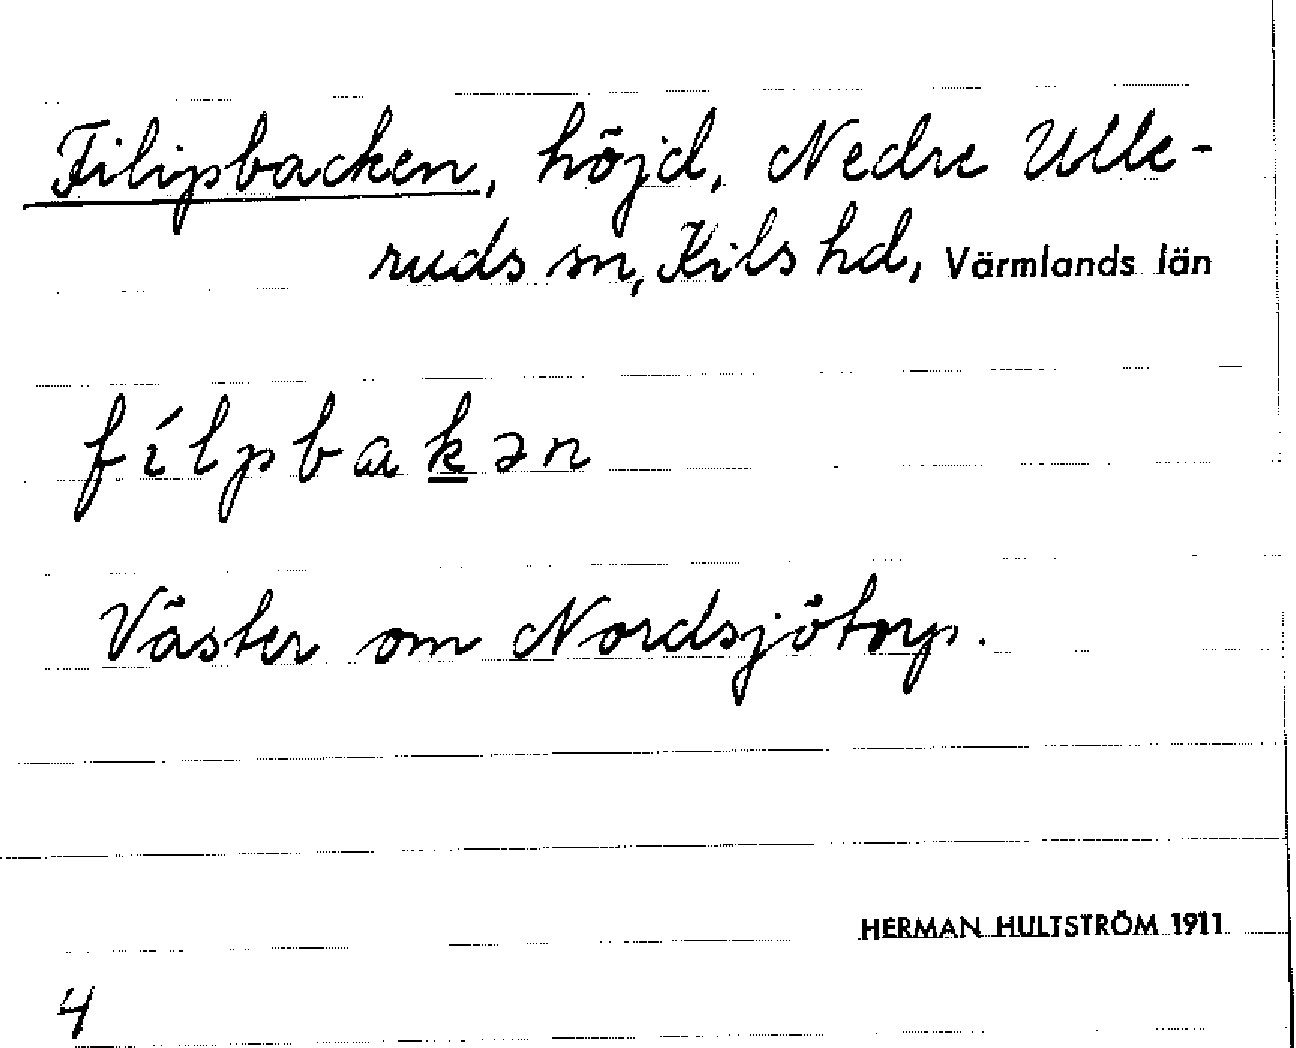 Filipsbacken, höjd, Nedre Ulle-
ruds sn, Kils hd, Värmlands län
fílpbakən
Väster om Nordsjötorp.
HERMAN HULTSTRÖM 1911
4